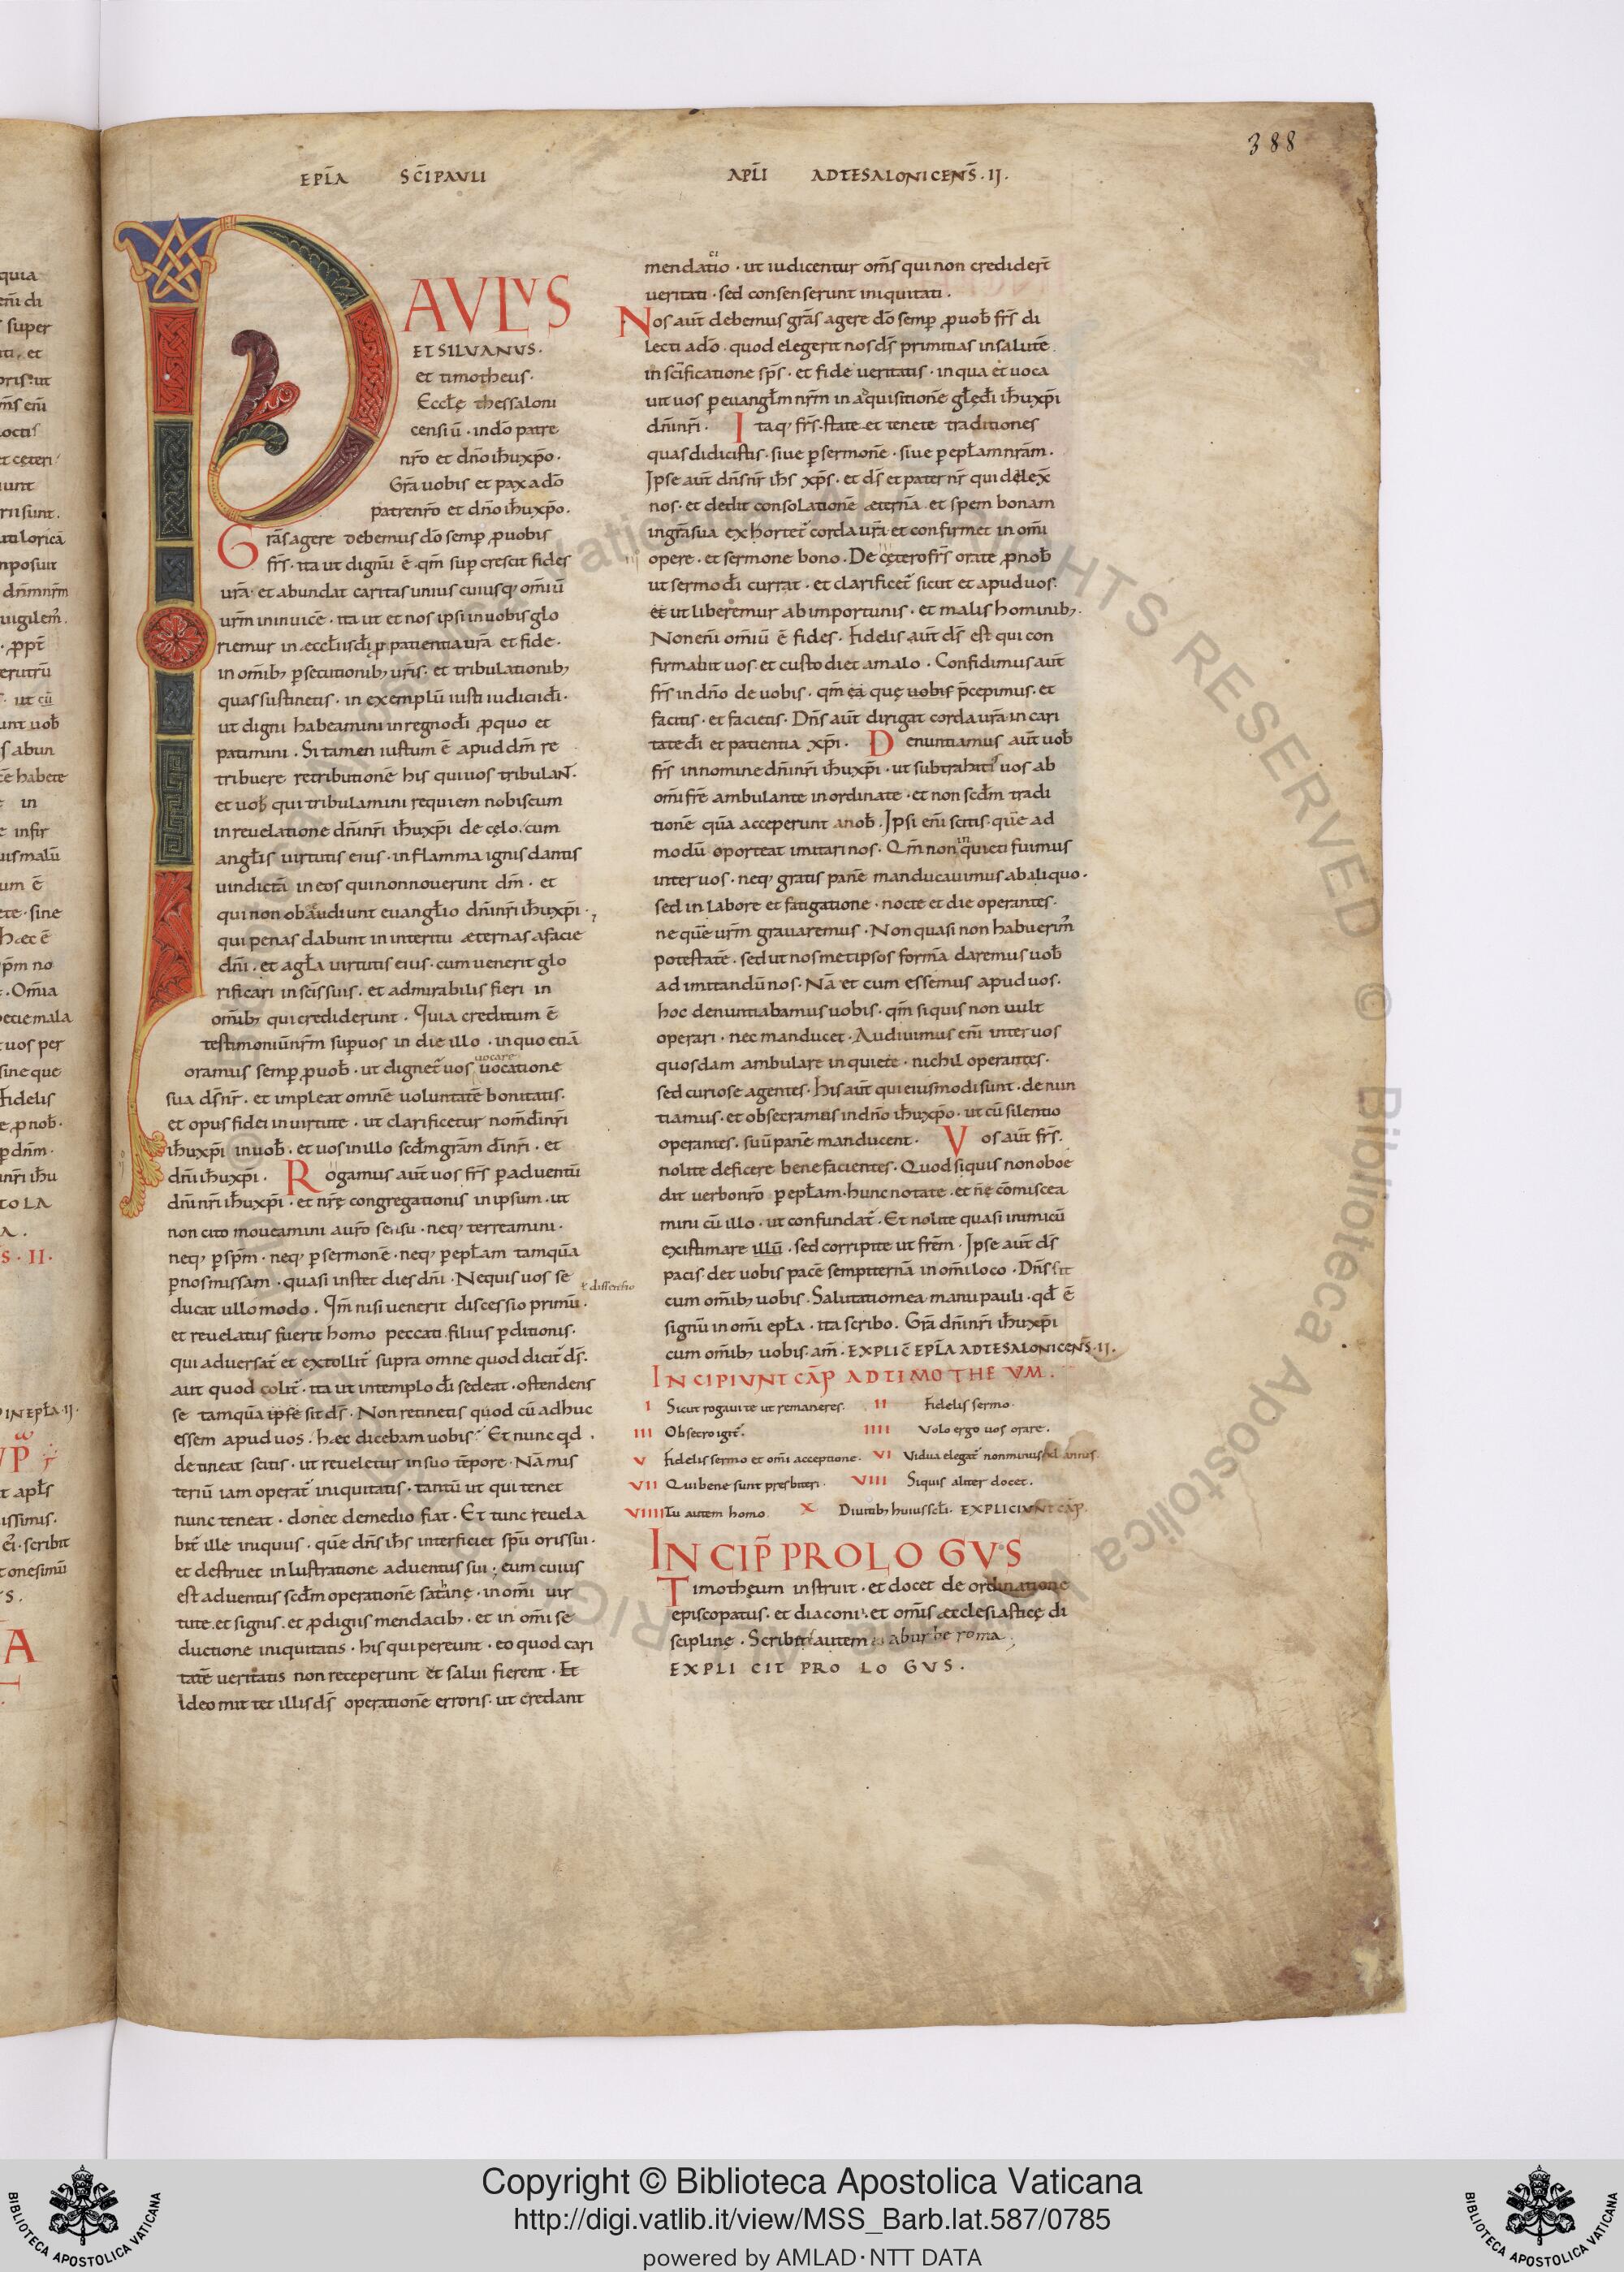 388
EPL̄A SC̄I PAULI APL̄I AD TESALONICENS̄. II.
PAVLVS
ET SILVANUS.
et timotheus.
Eccłę thessaloni
censiū. in dō patre
nr̄o et dn̄o ih̄u xp̄o.
Gr̄a uobis et pax a dō
patre nr̄o et dn̄o ih̄u xp̄o.
Gr̄as agere debemus dō semp̱ ꝓ uobis
fr̄s. ita ut dignū ē. qm̄ sup̱ crescit fides
ur̄a. et abundat caritas unius cuiusq; om̄iū
ur̄m in inuicē. ita ut et nos ipsi in uobis glo
riemur in æccłiis dī. ꝓ patientia ur̄a et fide.
in om̄ib; p̱secutionib; ur̄is. et tribulationib;
quas sustinetis. in exemplū iusti iudicii dī.
ut digni habeamini in regno dī ꝓ quo et
patimini. Si tamen iustum ē apud dm̄ re
tribuere retributionē his qui uos tribulaƞt.
et uob̄ qui tribulamini requiem nobiscum
in reuelatione dn̄i nr̄i ih̄u xp̄i de cęlo. cum
angłis uirtutis eius. in flamma ignis dantis
uindictā in eos qui non nouerunt dm̄. et
qui non obaudiunt euangłio dn̄i nr̄i ih̄u xp̄i.
qui penas dabunt in interitu æternas a facie
dn̄i. et a gła uirtutis eius. cum uenerit glo
rificari in sc̄is suis. et admirabilis fieri in
om̄ib; qui crediderunt. Quia creditum ē
testimoniū nr̄m sup̱ uos in die illo. in quo etiā
uocare
oramus semp̱ ꝓ uob̄. ut dignet̄ uos uocatione
sua d̄s nr̄. et impleat omnē uoluntatē bonitatis.
et opus fidei in uirtute. ut clarificetur nom̄ dn̄i nr̄i
ih̄u xp̄i in uob̄. et uos in illo scd̄m gr̄am dī nr̄i. et
dn̄i ih̄u xp̄i. Rogamus aut̄ uos fr̄s p̱ aduentū
dn̄i nr̄i ih̄u xp̄i. et nr̄ę congregationis in ipsum. ut
non cito moueamini a ur̄o sensu. neq; terreamini.
neq; p̱ sp̄m. neq; p̱ sermonē. neq; p̱ epłam tamquā
p̱ nos missam. quasi instet dies dn̄i. Ne quis uos se
ducat ullo modo. Qm̄ nisi uenerit discessio primū.
ł dissensio
et reuelatus fuerit homo peccati filius p̱ditionis.
qui aduersat̄ et extollit̄ supra omne quod dicit̄ d̄s.
aut quod colit̄. ita ut in templo dī sedeat. ostendens
se tamquā ipse sit d̄s. Non retinetis quod cū adhuc
essem apud uos. hæc dicebam uobis. Et nunc qd̄.
detineat scitis. ut reueletur in suo tēpore. Nā mis
teriū iam operat̄ iniquitatis. tantū ut qui tenet
nunc teneat. donec de medio fiat. Et tunc reuela
bit̄ ille iniquus. quē dn̄s ih̄s interficiet sp̄u oris sui.
et destruet inlustratione aduentus sui; eum cuius
est aduentus scd̄m operationē satanę. in om̄i uir
tute. et signis. et ꝓdigiis mendacib;. et in om̄i se
ductione iniquitatis. his qui pereunt. eo quod cari
tatē ueritatis non receperunt ut salui fierent. Et
ideo mittet illis d̄s operationē erroris. ut credant
mendatio. ut iudicentur om̄s qui non credider̄t
ueritati. sed consenserunt iniquitati.
Nos aut̄ debemus gr̄as agere dō semp̱ ꝓ uob̄ fr̄s di
lecti a dō. quod elegerit nos d̄s primitias in salutē.
in sc̄ificatione sp̄s. et fide ueritatis. in qua et uoca
uit uos p̱ euangłm nr̄m in adquisitionē głę dī ih̄u xp̄i
dn̄i nr̄i. Itaq; fr̄s. state et tenete traditiones
quas didicistis. siue p̱ sermonē. siue p̱ epłam nr̄am.
Ipse aut̄ dn̄s nr̄ ih̄s xp̄s. et d̄s et pater nr̄ qui dilex̄
nos. et dedit consolationē æternā. et spem bonam
in gr̄a sua exhortet̄ corda ur̄a. et confirmet in om̄i
opere. et sermone bono. De cętero fr̄s orate ꝓ nob̄
ut sermo dī currat. et clarificet̄ sicut et apud uos.
et ut liberemur ab importunis. et malis hominib;.
Non em̄ om̄iū ē fides. Fidelis aut̄ d̄s est qui con
firmabit uos. et custodiet a malo. Confidimus aut̄
fr̄s in dn̄o de uobis. qm̄ ea quę uobis p̄cepimus. et
facitis. et facietis. Dn̄s aut̄ dirigat corda ur̄a in cari
tate dī et patientia xp̄i. Denuntiamus aut̄ uob̄
fr̄s in nomine dn̄i nr̄i ih̄u xp̄i. ut subtrahatis uos ab
om̄i fr̄e ambulante inordinate. et non scd̄m tradi
tionē quā acceperunt a nob̄. Ipsi em̄ scitis. quē ad
modū oporteat imitari nos. Qm̄ non inquieti fuimus
inter uos. neq; gratis panē manducauimus ab aliquo.
sed in labore et fatigatione. nocte et die operantes.
ne quē ur̄m grauaremus. Non quasi non habuerim̄
potestatē. sed ut nosmetipsos formā daremus uob̄
ad imitandū nos. Nā et cum essemus apud uos.
hoc denuntiabamus uobis. qm̄ si quis non uult
operari. nec manducet. Audiuimus em̄ inter uos
quosdam ambulare inquiete. nichil operantes.
sed curiose agentes. His aut̄ qui eiusmodi sunt. denun
tiamus. et obsecramus in dn̄o ih̄u xp̄o. ut cū silentio
operantes. suū panē manducent. Vos aut̄ fr̄s.
nolite deficere bene facientes. Quod si quis non oboe
dit uerbo nr̄o p̱ epłam. hunc notate. et nę cōmiscea
mini cū illo. ut confundat̄. Et nolite quasi inimicū
existimare illū. sed corripite ut fr̄em. Ipse aut̄ d̄s
pacis det uobis pacē sempiternā in om̄i loco. Dn̄s sit
cum om̄ib; uobis. Salutatio mea manu pauli. qd̄ ē
signū in om̄i epła. ita scribo. Gr̄a dn̄i nr̄i ih̄u xp̄i
cum om̄ib; uobis. am̄. EXPLIC̄ EPL̄A AD TESALONICENS̄. II.
INCIPIVNT CAP̄ AD TIMOTHEVM.
I Sicut rogaui te ut remaneres. II Fidelis sermo.
III Obsecro igit̄. IIII Volo ergo uos orare.
V Fidelis sermo et om̄i acceptione. VI Vidua elegat̄ non minus annos
VII Qui bene sunt presbiteri. VIII Siquis aliter docet.
VIIII Tu autem homo. X Diuitib; huius scłi. EXPLICIVNT CAP̄.
INCIP̄ PROLOGVS
Timotheum instruit. et docet de ordinatione
episcopatus. et diaconi. et om̄is æcclesiasticę di
sciplinę. Scribit autem ab urbe roma.
EXPLICIT PROLOGVS.
Copyright © Biblioteca Apostolica Vaticana
http://digi.vatlib.it/view/MSS_Barb.lat.587/0785
powered by AMLAD·NTT DATA
BIBLIOTECA APOSTOLICA VATICANA
BIBLIOTECA APOSTOLICA VATICANA